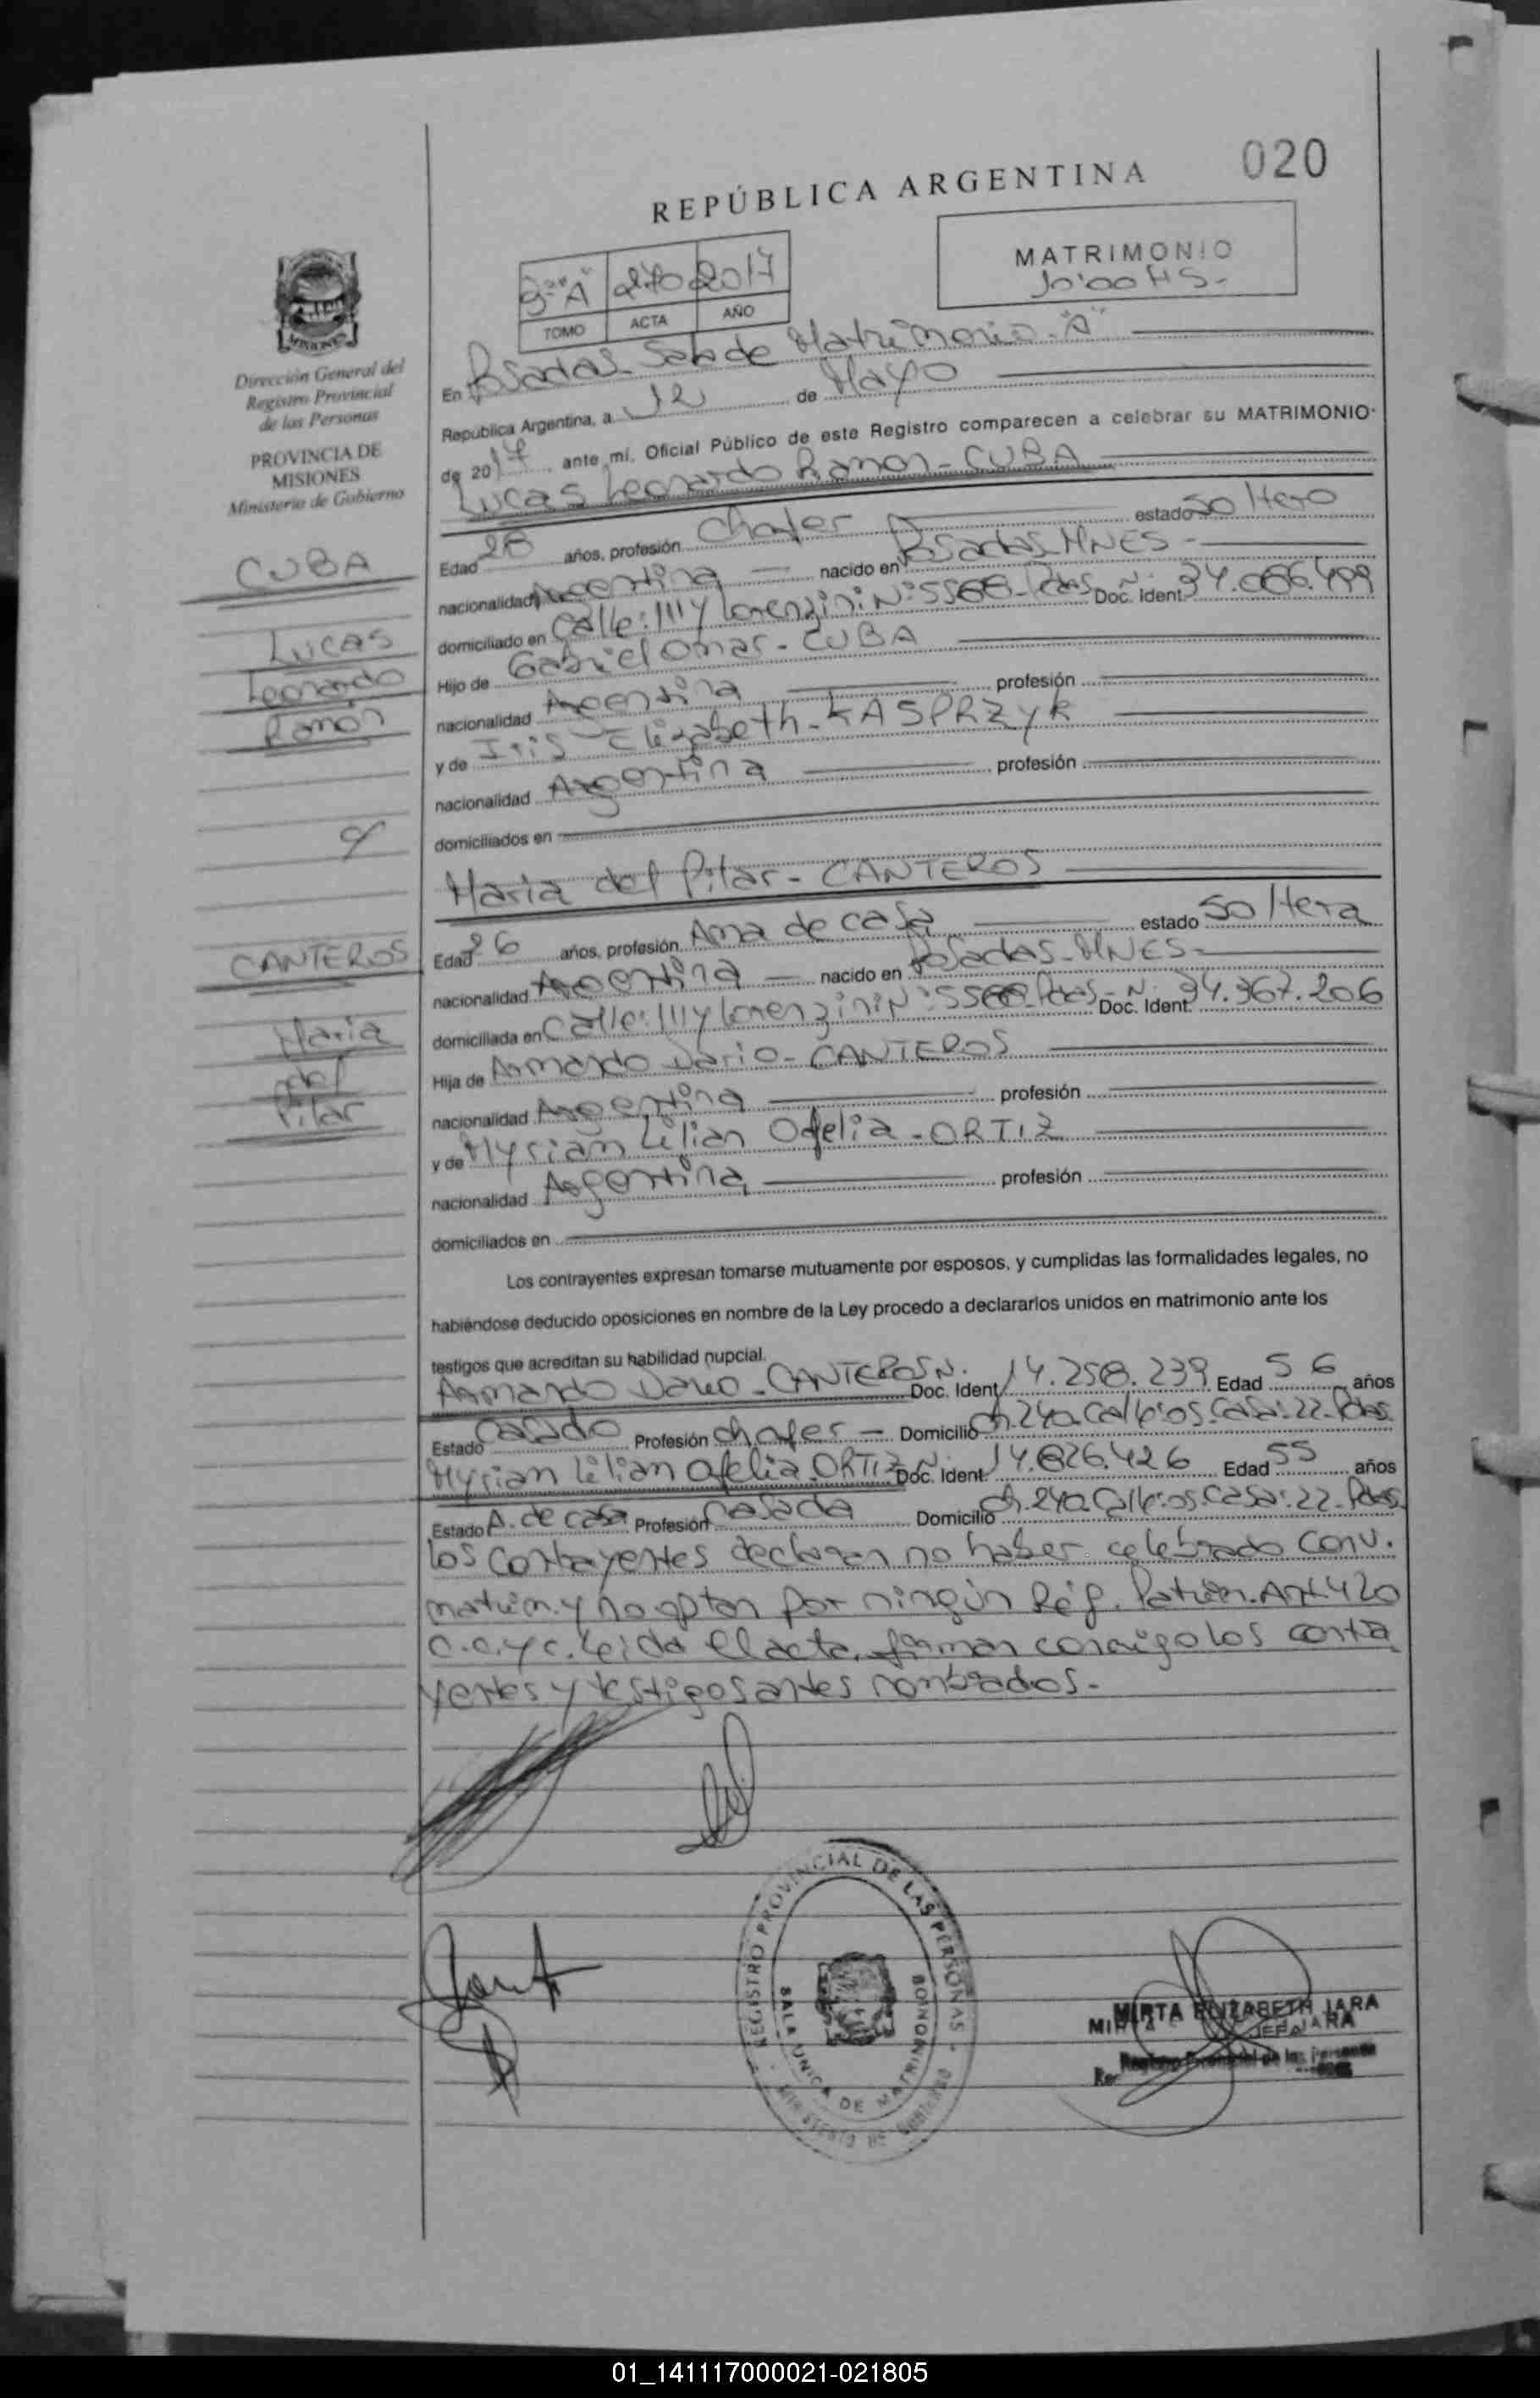 020
REPÚBLICA ARGENTINA
MATRIMONIO
10:00 HS-
9-"A" 270 2017
TOMO ACTA AÑO
Dirección General del
Registro Provincial
de las Personas
PROVINCIA DE
MISIONES
Ministerio de Gobierno
CUBA
Lucas
Leonardo
Ramón
y
CANTEROS
Maria
del
Pilar
En Posadas Sala de Matrimonio "A"
República Argentina, a 12 de Mayo
de 2017, ante mí, Oficial Público de este Registro comparecen a celebrar su MATRIMONIO
Lucas Leonardo Ramon - CUBA
Edad 28 años, profesión Chofer estado Soltero
nacionalidad Argentina nacido en Posadas MNES-
domiciliado en Calle: 111 y Lorenzini N: 5568 Pdas Doc. Ident. N. 34.066.499
Hijo de Gabriel Omar - CUBA
nacionalidad Argentina profesión
y de Iris Elizabeth - KASPRZYK
nacionalidad Argentina profesión
domiciliados en
Maria del Pilar - CANTEROS
Edad 26 años, profesión Ama de casa estado Soltera
nacionalidad Argentina nacido en Posadas-MNES-
domiciliada en Calle: 111 y Lorenzini N: 5568 Pdas- Doc. Ident. N. 34.367.206
Hija de Armando Dario - CANTEROS
nacionalidad Argentina profesión
y de Myrian Lilian Ofelia - ORTIZ
nacionalidad Argentina profesión
domiciliados en
Los contrayentes expresan tomarse mutuamente por esposos, y cumplidas las formalidades legales, no
habiéndose deducido oposiciones en nombre de la Ley procedo a declararlos unidos en matrimonio ante los
testigos que acreditan su habilidad nupcial.
Armando Dario - CANTEROS N. Doc. Ident. 14.258.239 Edad 56 años
Estado Casado Profesión chofer - Domicilio Ch. 240. Calle: 05. Casa: 22. Pdas.
Myrian Lilian Ofelia. ORTIZ N. Doc. Ident. 14.826.426 Edad 55 años
Estado A. de casa Profesión Casada Domicilio Ch. 240. Calle: 05. Casa: 22. Pdas.
los contrayentes declaran no haber celebrado conv.
matrim. y no optan por ningún Rég. Patrim. Art 420
C.C. y C. Leida el acta, firman conmigo los contra
yentes y testigos antes nombrados.-
REGISTRO PROVINCIAL DE LAS PERSONAS
SALA UNICA DE MATRIMONIOS
MIRTA ELIZABETH JARA
JEFA
Registro Provincial de las Personas
01_141117000021-021805